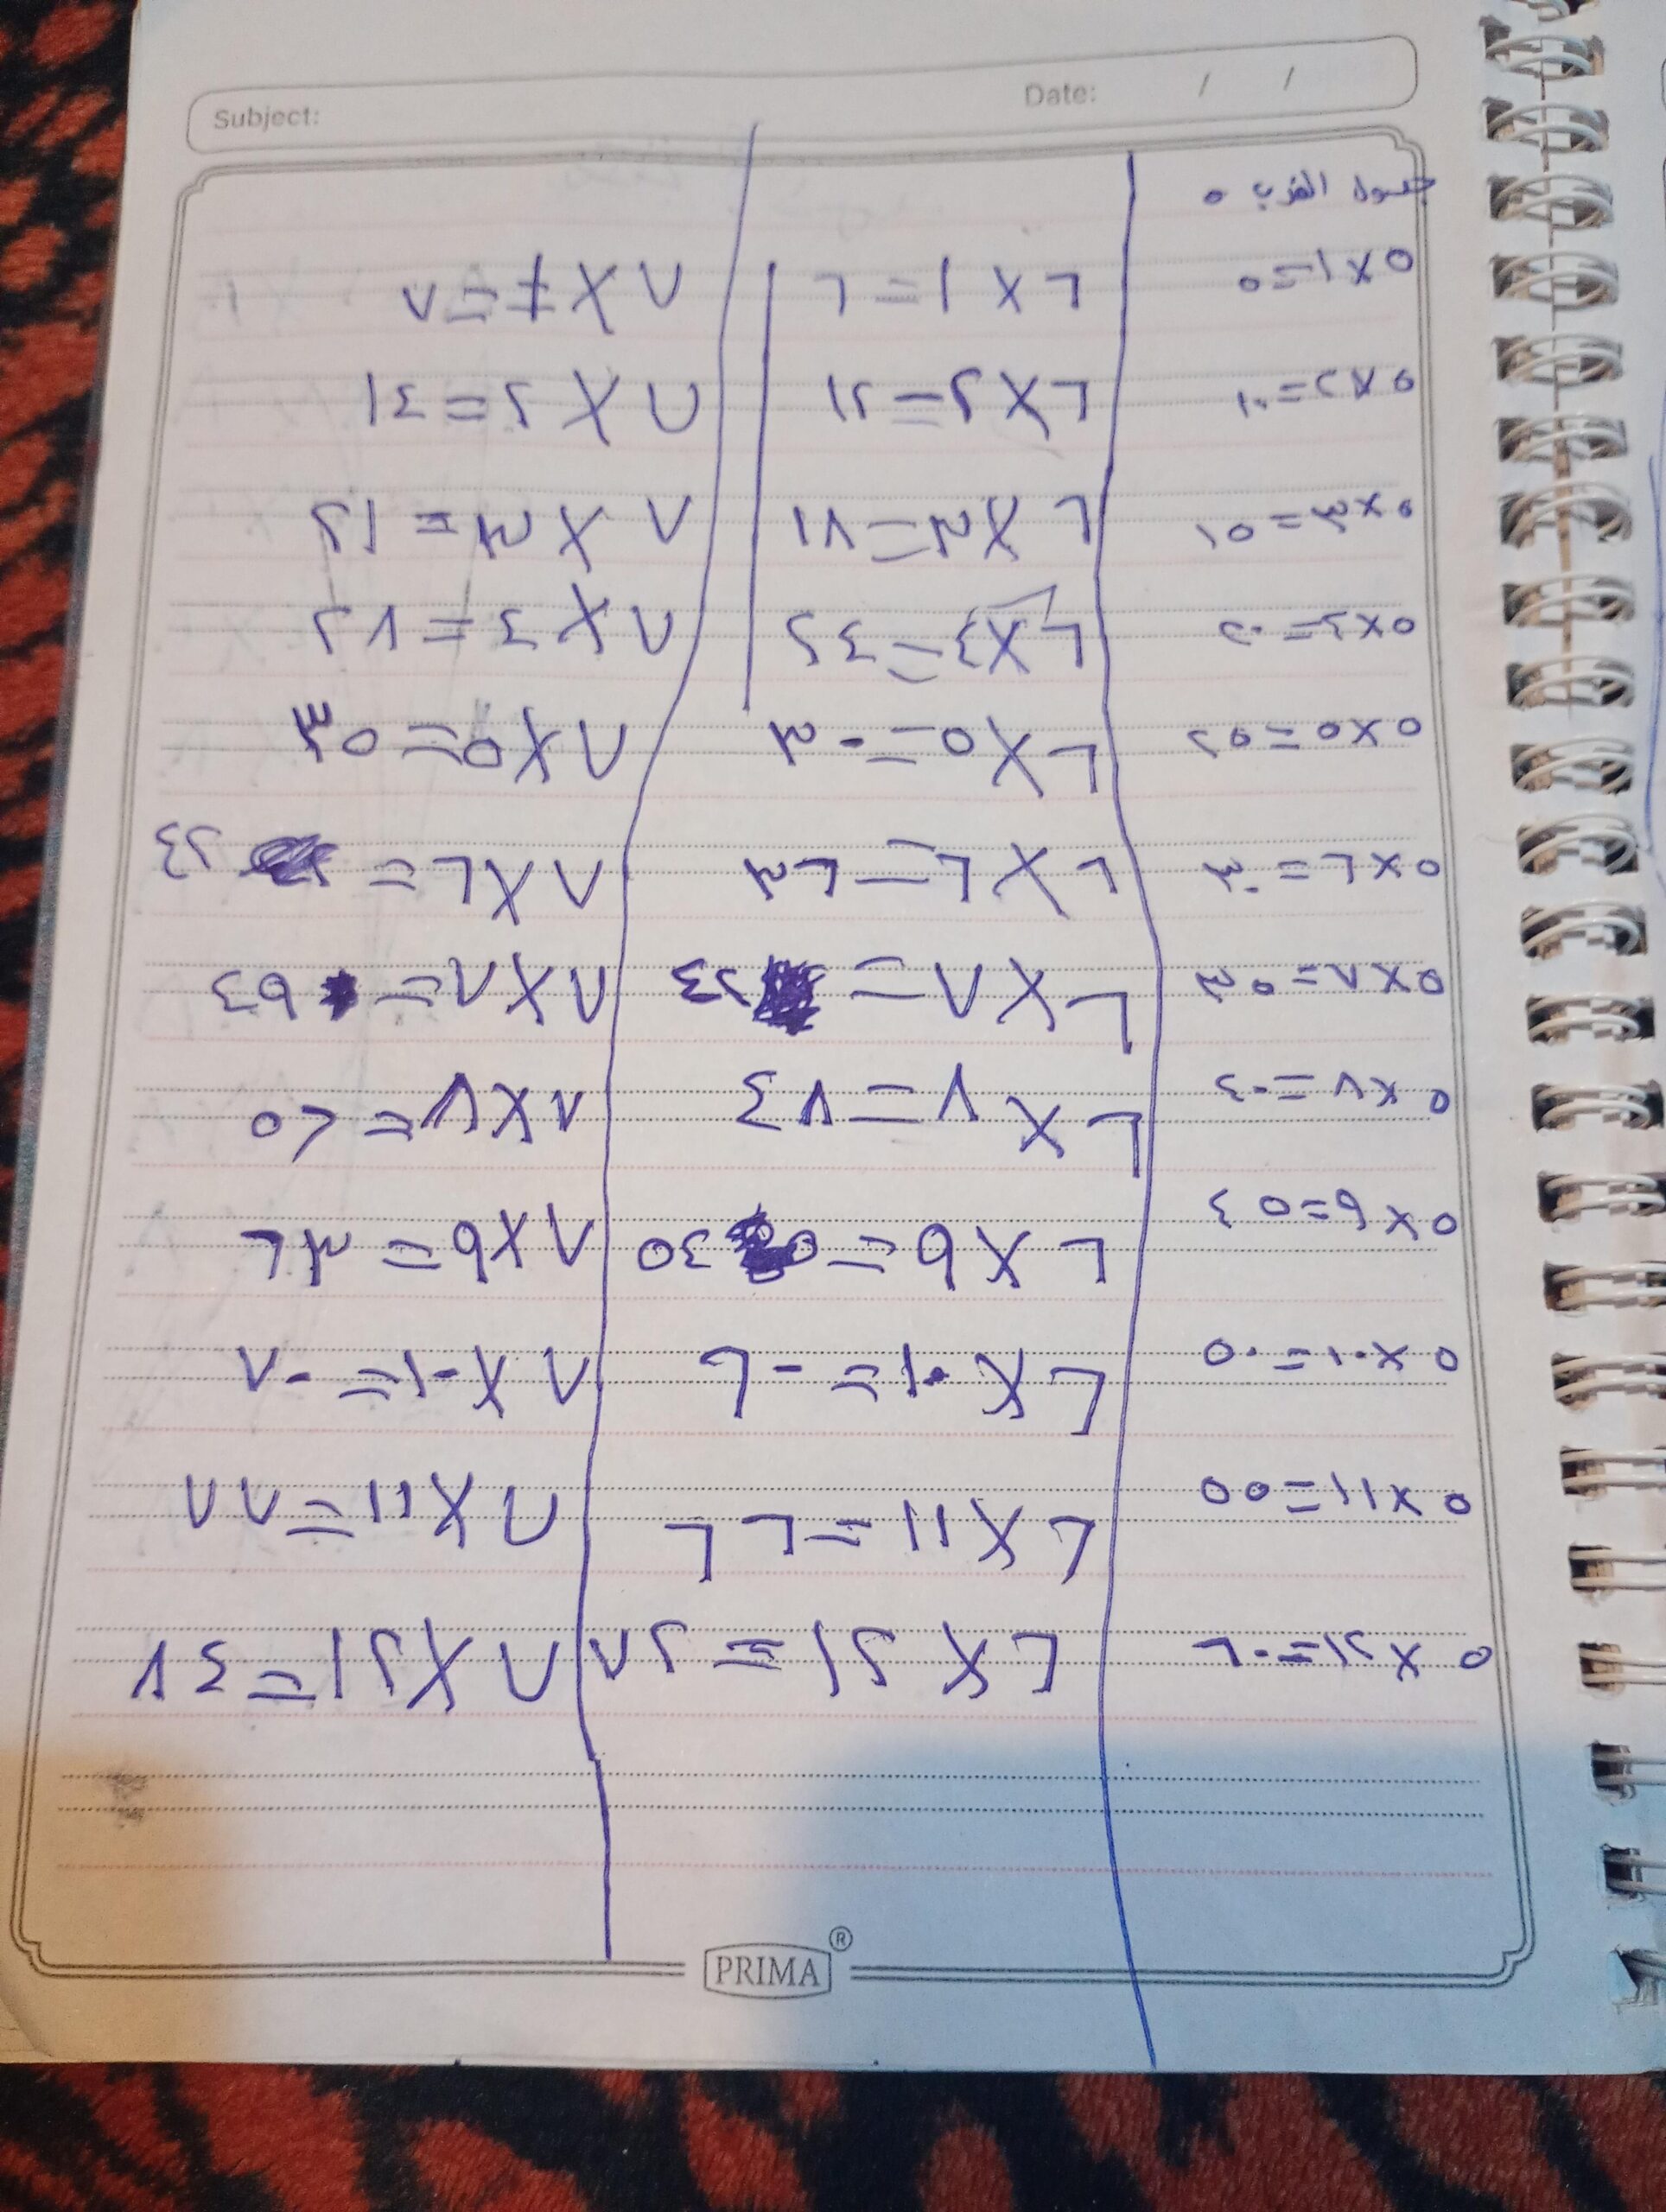 جدول الضرب ٥
٥×١=٥
٥×٢=١٠
٥×٣=١٥
٥×٤=٢٠
٥×٥=٢٥
٥×٦=٣٠
٥×٧=٣٥
٥×٨=٤٠
٥×٩=٤٥
٥×١٠=٥٠
٥×١١=٥٥
٥×١٢=٦٠
٦×١=٦
٦×٢=١٢
٦×٣=١٨
٦×٤=٢٤
٦×٥=٣٠
٦×٦=٣٦
٦×٧=٤٢
٦×٨=٤٨
٦×٩=٥٤
٦×١٠=٦٠
٦×١١=٦٦
٦×١٢=٧٢
٧×١=٧
٧×٢=١٤
٧×٣=٢١
٧×٤=٢٨
٧×٥=٣٥
٧×٦=٤٢
٧×٧=٤٩
٧×٨=٥٦
٧×٩=٦٣
٧×١٠=٧٠
٧×١١=٧٧
٧×١٢=٨٤
Subject:
Date: / /
PRIMA®